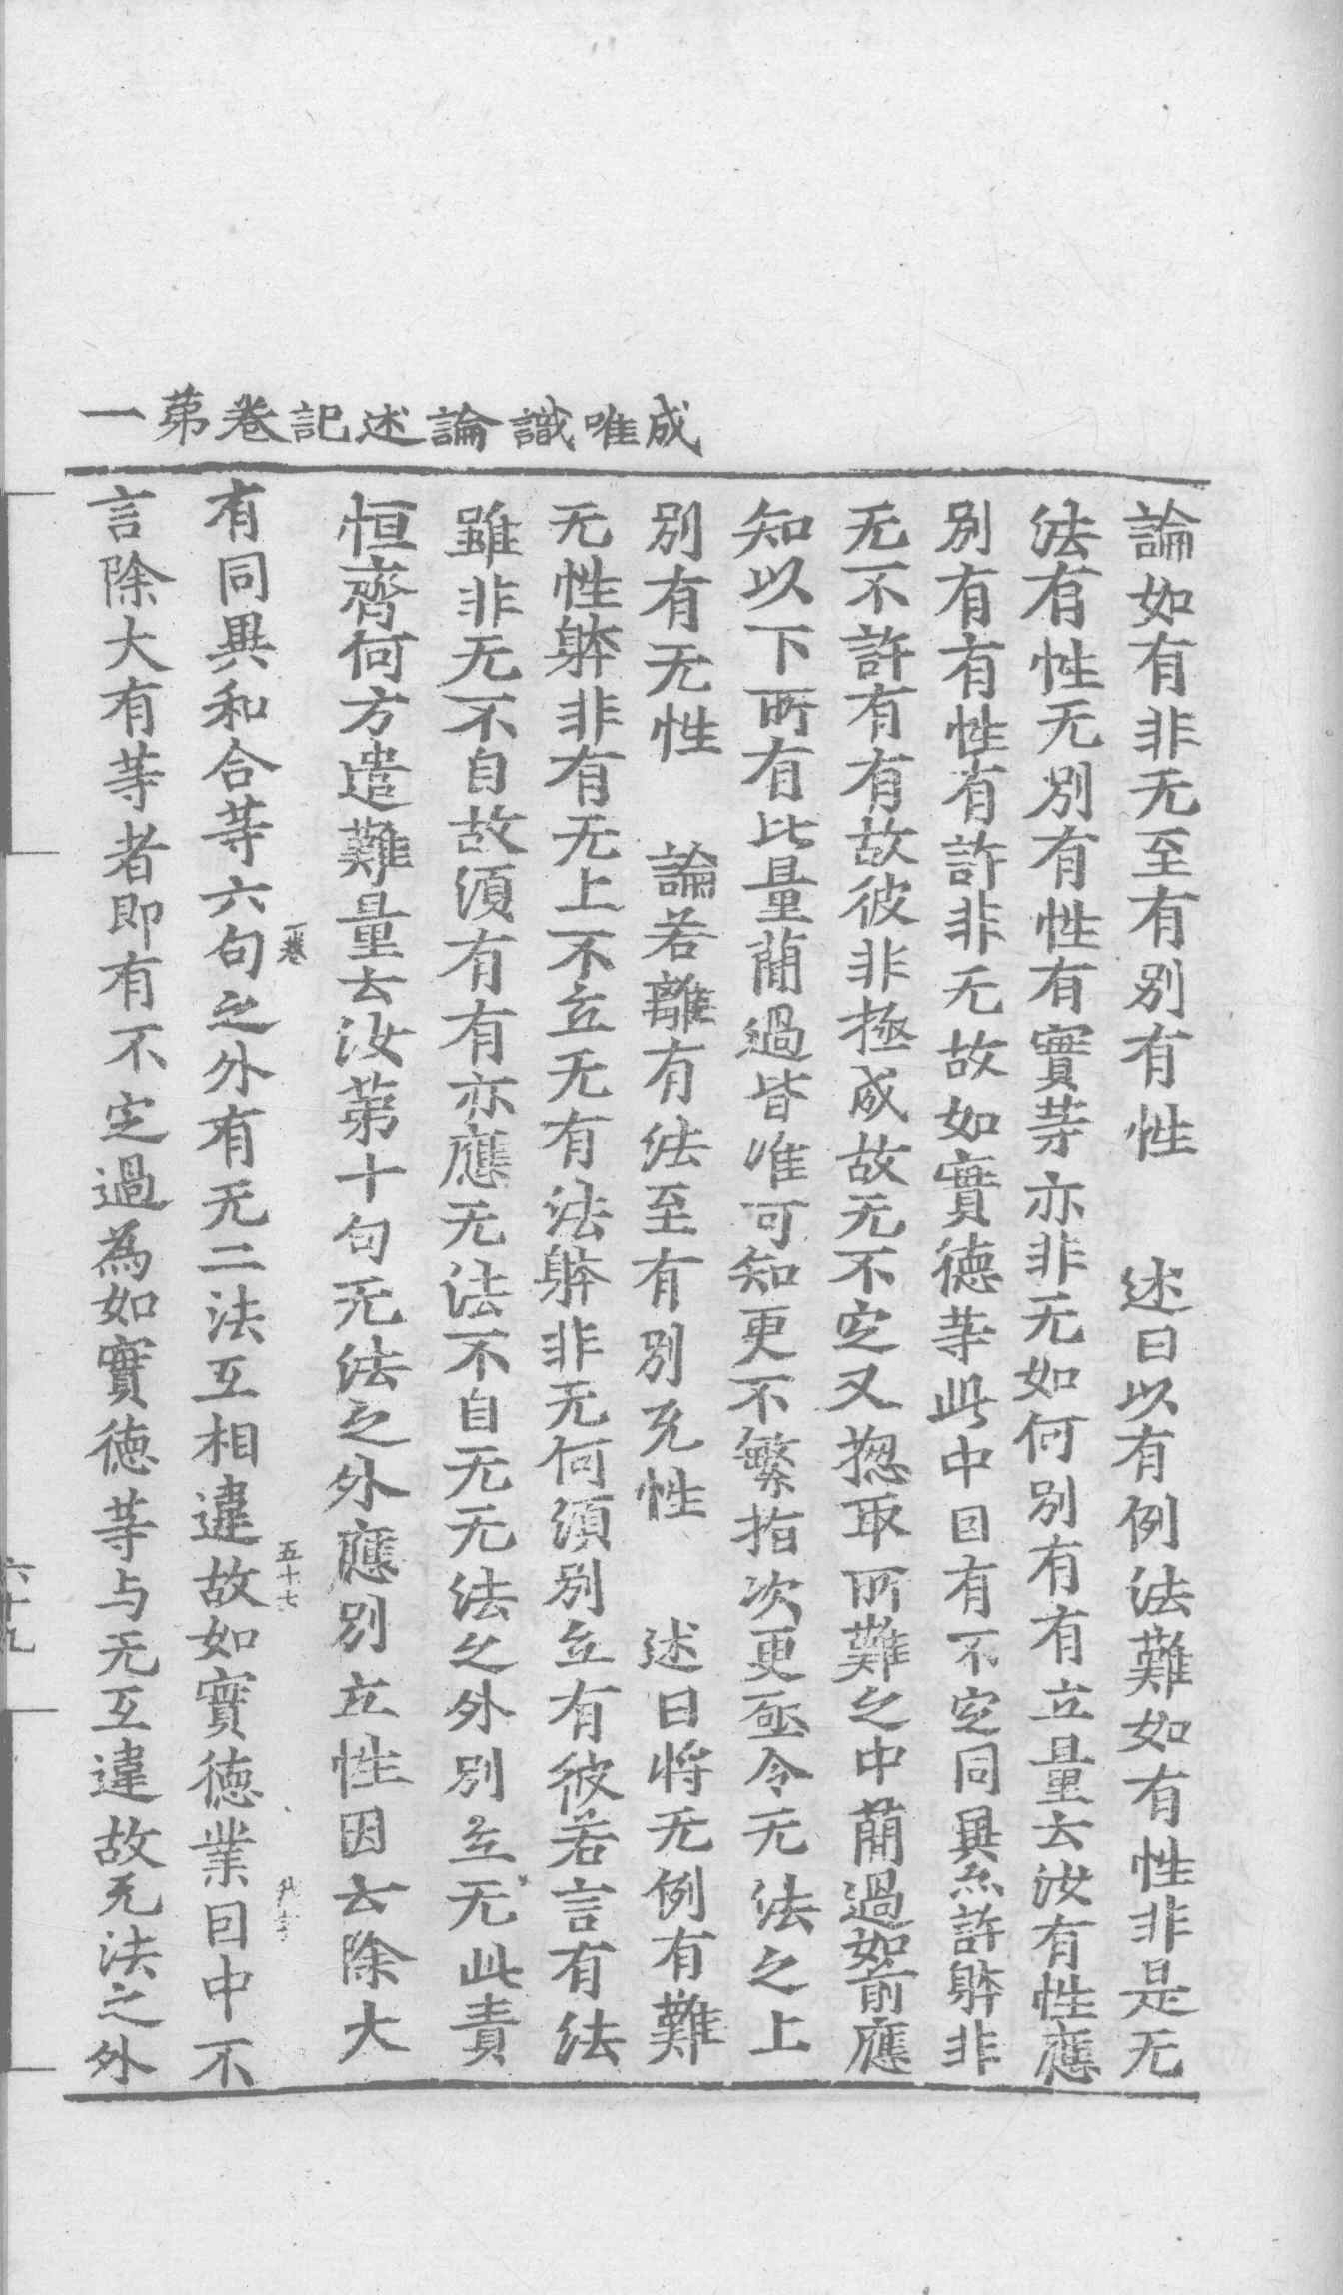 成唯識論述記卷苐一
論如有非无至有別有性　述曰以有例法難如有性非是无
法有性无別有性有實䓁亦非无如何別有有立量云汝有性應
別有有性有許非无故如實德䓁此中因有不定同異亦許躰非
无不許有有故彼非極成故无不定又揔取所難之中蕳過如前應
知以下所有比量蕳過皆准可知更不繁指次更亟令无法之上
別有无性　論若離有法至有別无性　述曰將无例有難
无性躰非有无上不立无有法躰非无何須別立有彼若言有法
雖非无不自故須有有亦應无法不自无无法之外別立无此責
恒齊何方遣難量云汝苐十句无法之外應別立性因云除大
有同異和合䓁六句之外有无二法互相違故如實德業因中不
言除大有䓁者即有不定過為如實德䓁与无互違故无法之外
一卷
五十七
六十九